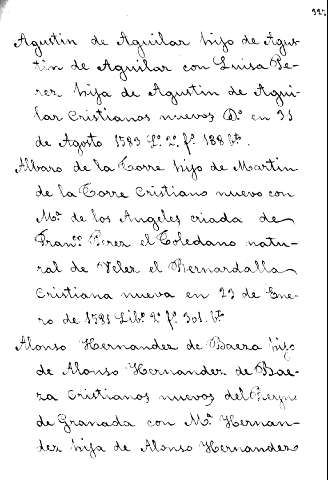 Agustin de Aguilar hijo de Agus-
tin de Aguilar con Luisa Pe-
rez hija de Agustin de Agui-
lar Cristianos nuevos Dº en 31
de Agosto 1583 Lº 2º fº 188 bto.
Alvaro de la Torre hijo de Martin
de la Torre Cristiano nuevo con
Mª de los Angeles criada de
Franco Perez el Toledano natu-
ral de Velez el
Cristiana nueva en 23 de Ene-
ro de 1581 Libº 2º fº 301 bto
Alonso Hernandez de Baeza hijo
de Alonso Hernandez de Bae-
za Cristianos nuevos del Reyno
de Granada con Mª Hernan-
dez hija de Alonso Hernandez